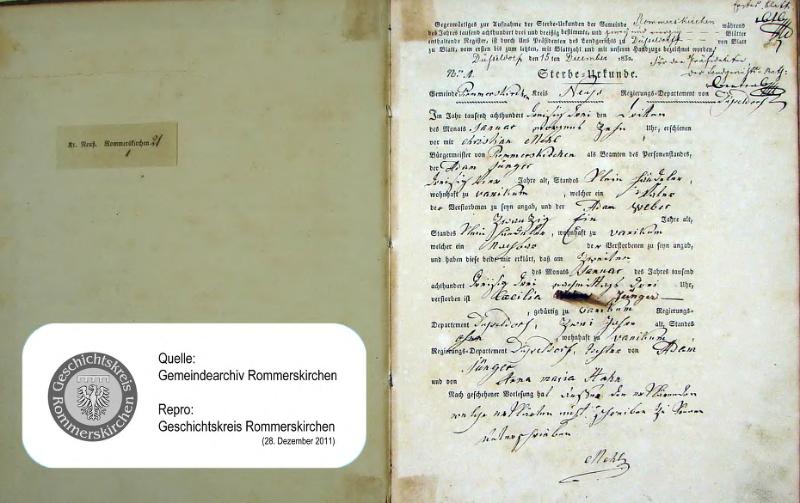 Kr. Neuß. Rommerskirchen 21
1
GESCHICHTSKREIS ROMMERSKIRCHEN
Quelle:
Gemeindearchiv Rommerskirchen
Repro:
Geschichtskreis Rommerskirchen
(28. Dezember 2011)
Erstes Blatt
Gegenwärtiges zur Aufnahme der Sterbe-Urkunden der Gemeinde Rommerskirchen während
des Jahres tausend achthundert drei und dreißig bestimmte, und zwei und vierzig Blätter
enthaltende Register, ist durch Uns Präsidenten des Landgerichts zu Düsseldorf von Blatt
zu Blatt, vom ersten bis zum letzten, mit Blattzahl und mit unserm Handzuge bezeichnet worden,
Düsseldorf den 15ten December 1832.
Für den Präsidenten
der Landgerichts-Rath
Nro. 1. Sterbe-Urkunde.
Gemeinde Rommerskirchen Kreis Neuss Regierungs-Departement von Düsseldorf
Im Jahr tausend achthundert dreißig drei den dritten
des Monats Januar vormittags zehn Uhr, erschienen
vor mir Christian Mehl
Bürgermeister von Rommerskirchen als Beamten des Personenstandes,
der Adam Jünger
dreißig vier Jahre alt, Standes Klein händeler,
wohnhaft zu Vanikum, welcher ein Vater
der Verstorbenen zu seyn angab, und der Adam Weber
zwanzig Ein Jahre alt,
Standes Klein händeler, wohnhaft zu Vanikum
welcher ein Nachbar der Verstorbenen zu seyn angab,
und haben diese beide mir erklärt, daß am zweiten
des Monats Januar des Jahres tausend
achthundert dreißig drei nachmittags drei Uhr,
verstorben ist Caecilia Jünger
, gebürtig zu Vanikum Regierungs-
Departement Düsseldorf, zwei Jahre alt, Standes
ohne , wohnhaft zu Vanikum
Regierungs-Departement Düsseldorf, Tochter von Adam
Jünger
und von Anna Maria Hahn
Nach geschehener Vorlesung hat dieser den erklärenden
welche erklärten nicht schreiben zu können
unterschrieben
Mehl